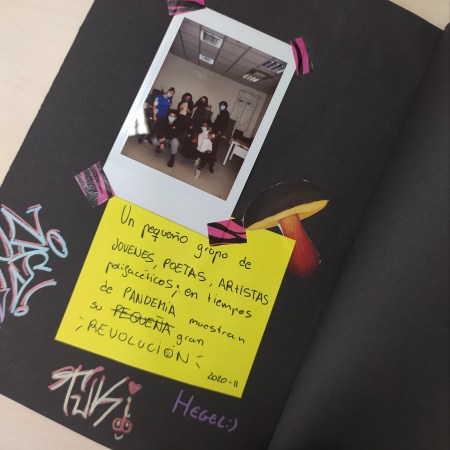 Un pequeño grupo de
JOVENES, POETAS, ARTISTAS
polifacéticos; en tiempos
de PANDEMIA muestran
su PEQUEÑA gran
¡REVOLUCIÓN!
2020-11
HEGEL:)